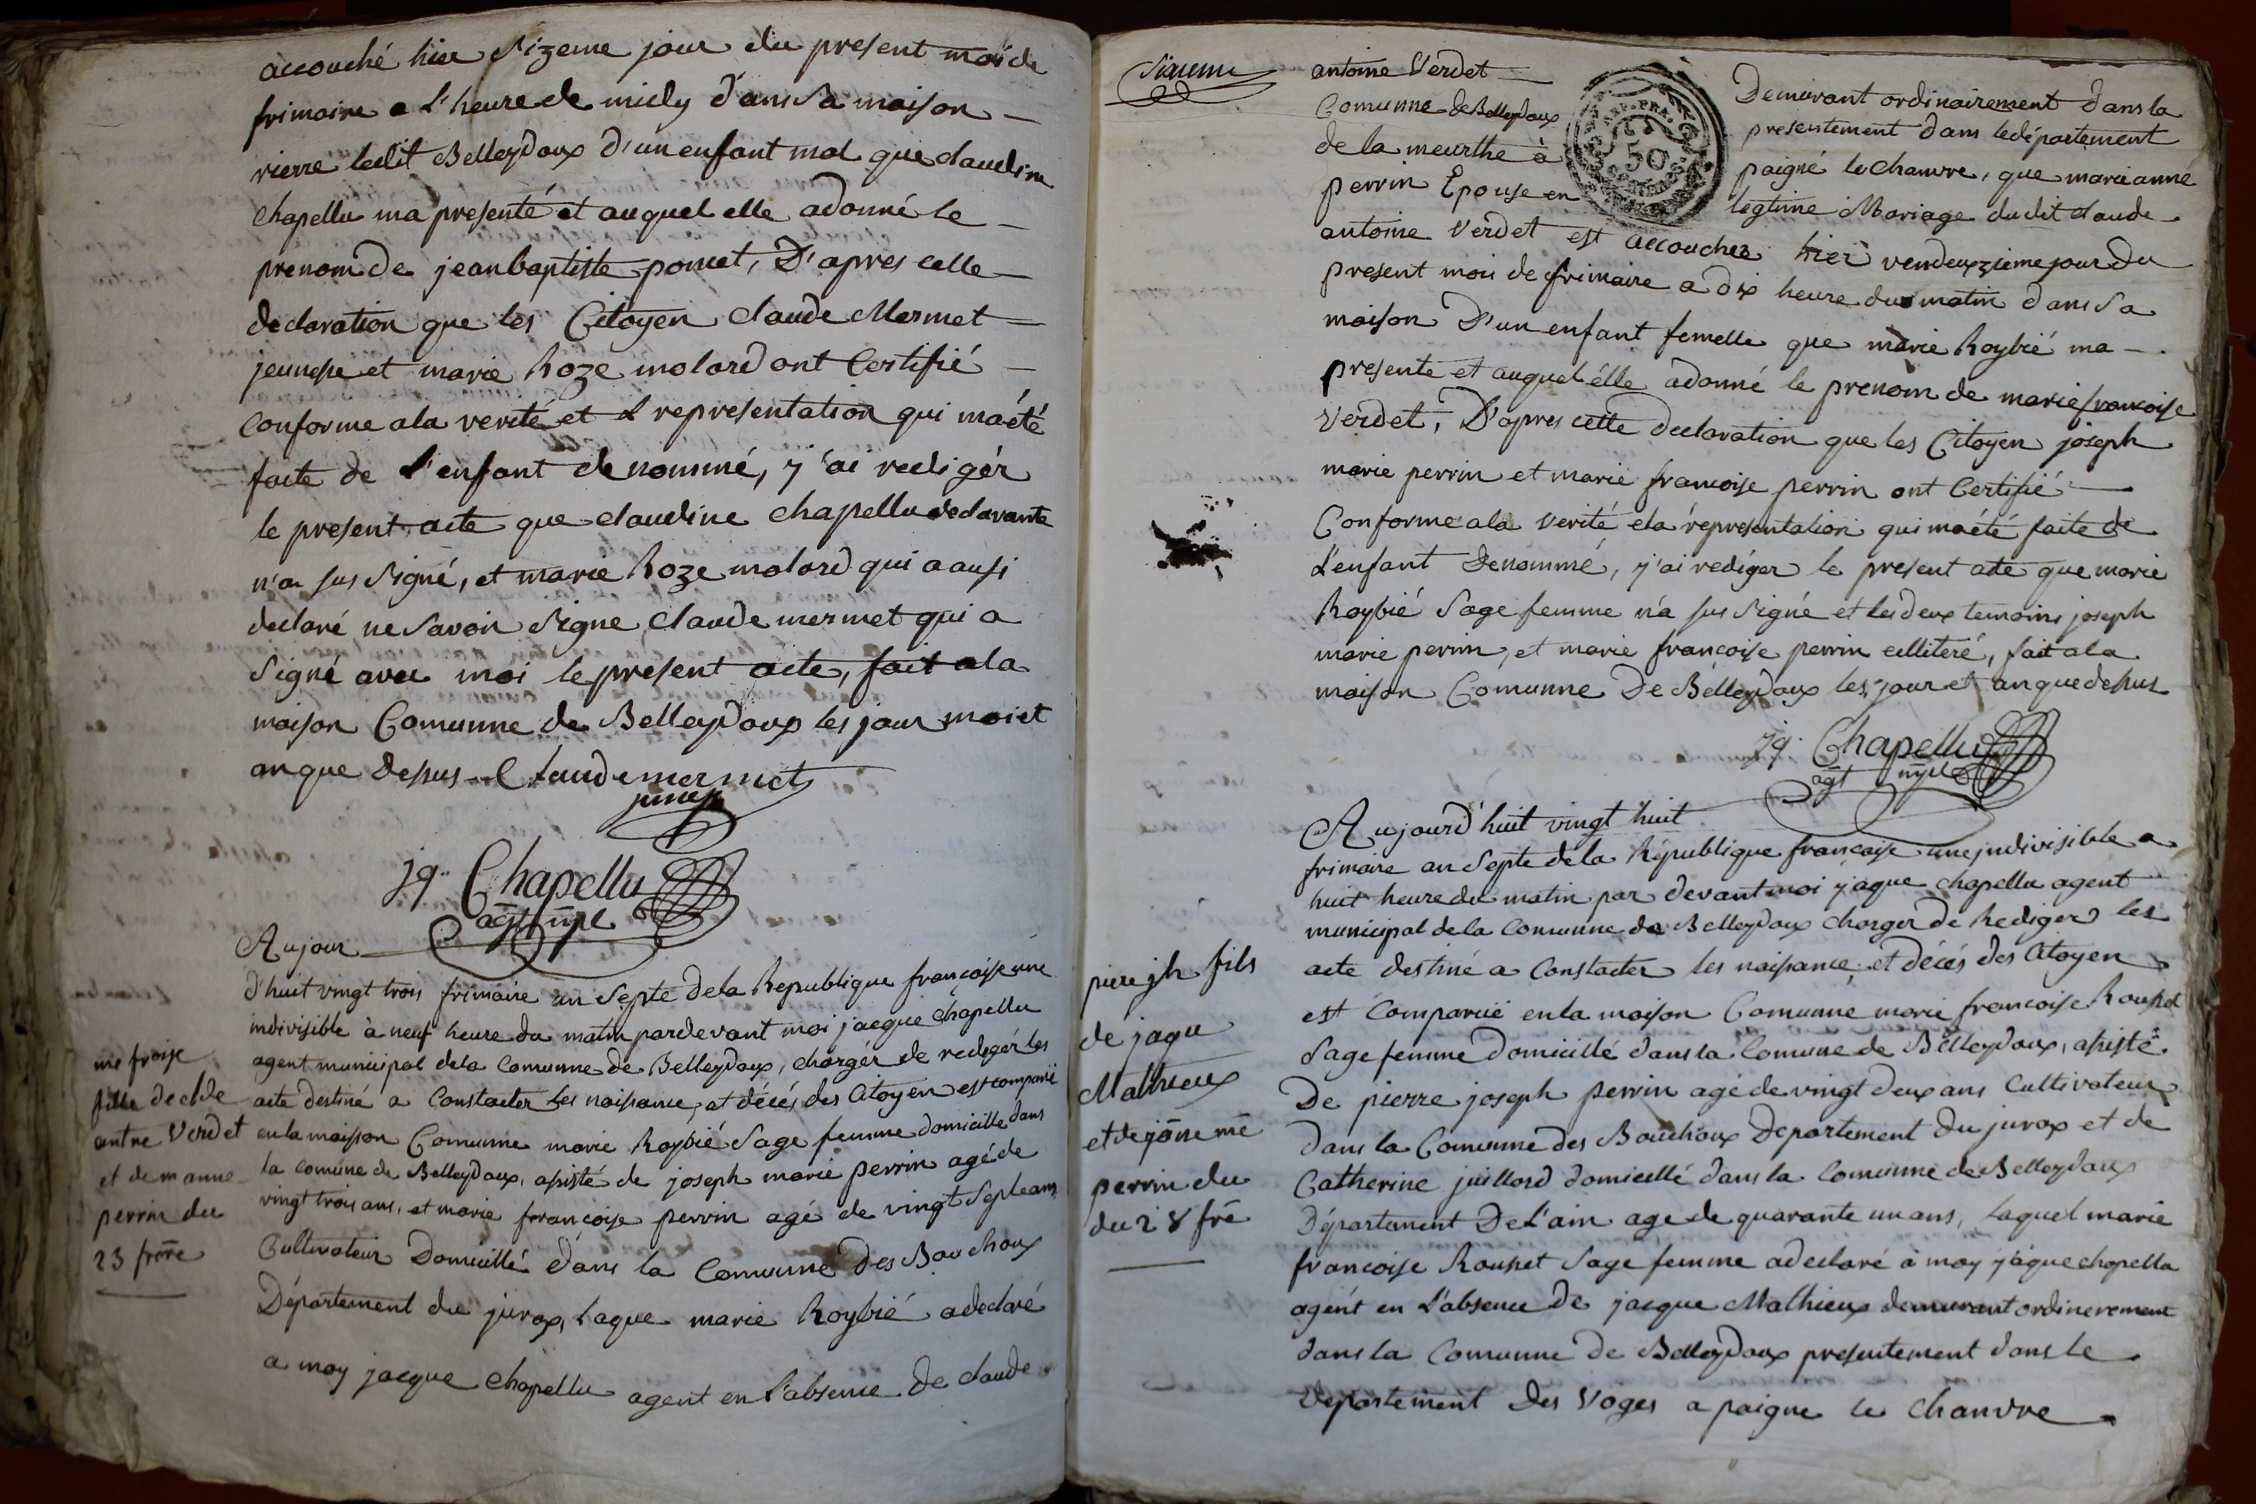 accouché hier Sizeme jour du present mois de
frimaire a l'heure de midy d'ans sa maison
rierre ledit Belleydoux d'un enfant mal que claudine
chapellu ma presenté et auquel elle adonné le
prenom de jeanbaptiste poncet, D'apres celle
declaration que les Citoyen claude Mermet
jeunesse et marie Roze molard ont Certifié
Conforme ala verité et l representation qui maété
faite de l'enfant denommé, j'ai redigér
le present acte que claudine chapellu declarante
n'a sus signé, et marie Roze molard qui a ausi
declaré ne savoir signe claude mermet qui a
signé avec moi le present acte, fait ala
maison Comunne de Belleydoux les jour mois et
an que desus Claude mermet
junesse
jq. Chapellu
agt mpl
Aujour
d'huit vingt trois frimaire an septe dela Republique françoise une
indivisible à neuf heure du matin pardevant moi jacque chapellu
agent municipal dela Comunne de Belleydoux, chargér de redegér les
acte destiné a Constacter les naissance, et décés des Citoyen est comparüe
en la maison Comunne marie Roybié Sage femme domicillé dans
la comune de Belleydoux, assisté de joseph marie perrin agé de
vingt trois ans, et marie françoise perrin agé de vingt Sept ans
Cultivateur Domicillé dans la Comunne des Bouchoux
Département du jurax, laque marie Roybié a declaré
a moy jacque chapellu agent en l'absence de claude
me froise
fille de clde
antne Verdet
et de m anne
perrin du
23 frimre
Sixieme
antoine Verdet Demurant ordinairement dans la
Comunne de Belleydoux presentement dans le département
de la meurthe à paigné le chanvre, que marie anne
perrin Epouse en legtime Mariage dudit claude
antoine Verdet est accouchée hier vendeuxzieme jour du
present mois de frimaire a dix heure du matin dans sa
maison D'un enfant femelle que marie Roybié ma
presente et auquel élle adonné le prenom de marie francoise
Verdet, D'apres cette declaration que les Citoyen joseph
marie perrin et marie francoise perrin ont Certifié
Conforme ala verité ela représentation qui maété faite de
l'enfant Denommé, j'ai rediger le present acte que marie
Roybié Sage femme n'a sus signé et les deux temoins joseph
marie perrin, et marie françoise perrin cellitéré, fait ala
maison Comunne De Bélleydoux les jour et an que desus
jq. Chapellu
agt mpl
Aujourd'huit vingt huit
frimaire an Septe de la République françaisse une judivisible a
huit heure du matin par devant moi j'aque chapellu agent
municipal de la Comunne de Belleydoux charger de Rediger les
acte destiné a Constacter les naissance et décés des Citoyen
est Comparüe en la maison Comunne marie francoise Rousset
Sage femme Domicillé dans la Comune de Bélleydoux, assisté
De pierre joseph perrin agé de vingt deux ans Cultivateur
dans la Comunne des Bouchoux Departement du jurax et de
Catherine juillard domicillé dans la Comunne de Belleydoux
Département De L'ain age de quarante un ans, laquel marie
francoise Rousset Sage femme a declaré à moy j'aque chapella
agent en l'absence de jacque Mathieux demurant ordinerement
dans la Comunne de Belleydoux presentement dans le
departement des Voges a paigne le chanvre
piere jh fils
de jaqu
Mathieux
et de jõne me
perrin du
du 28 fre
50